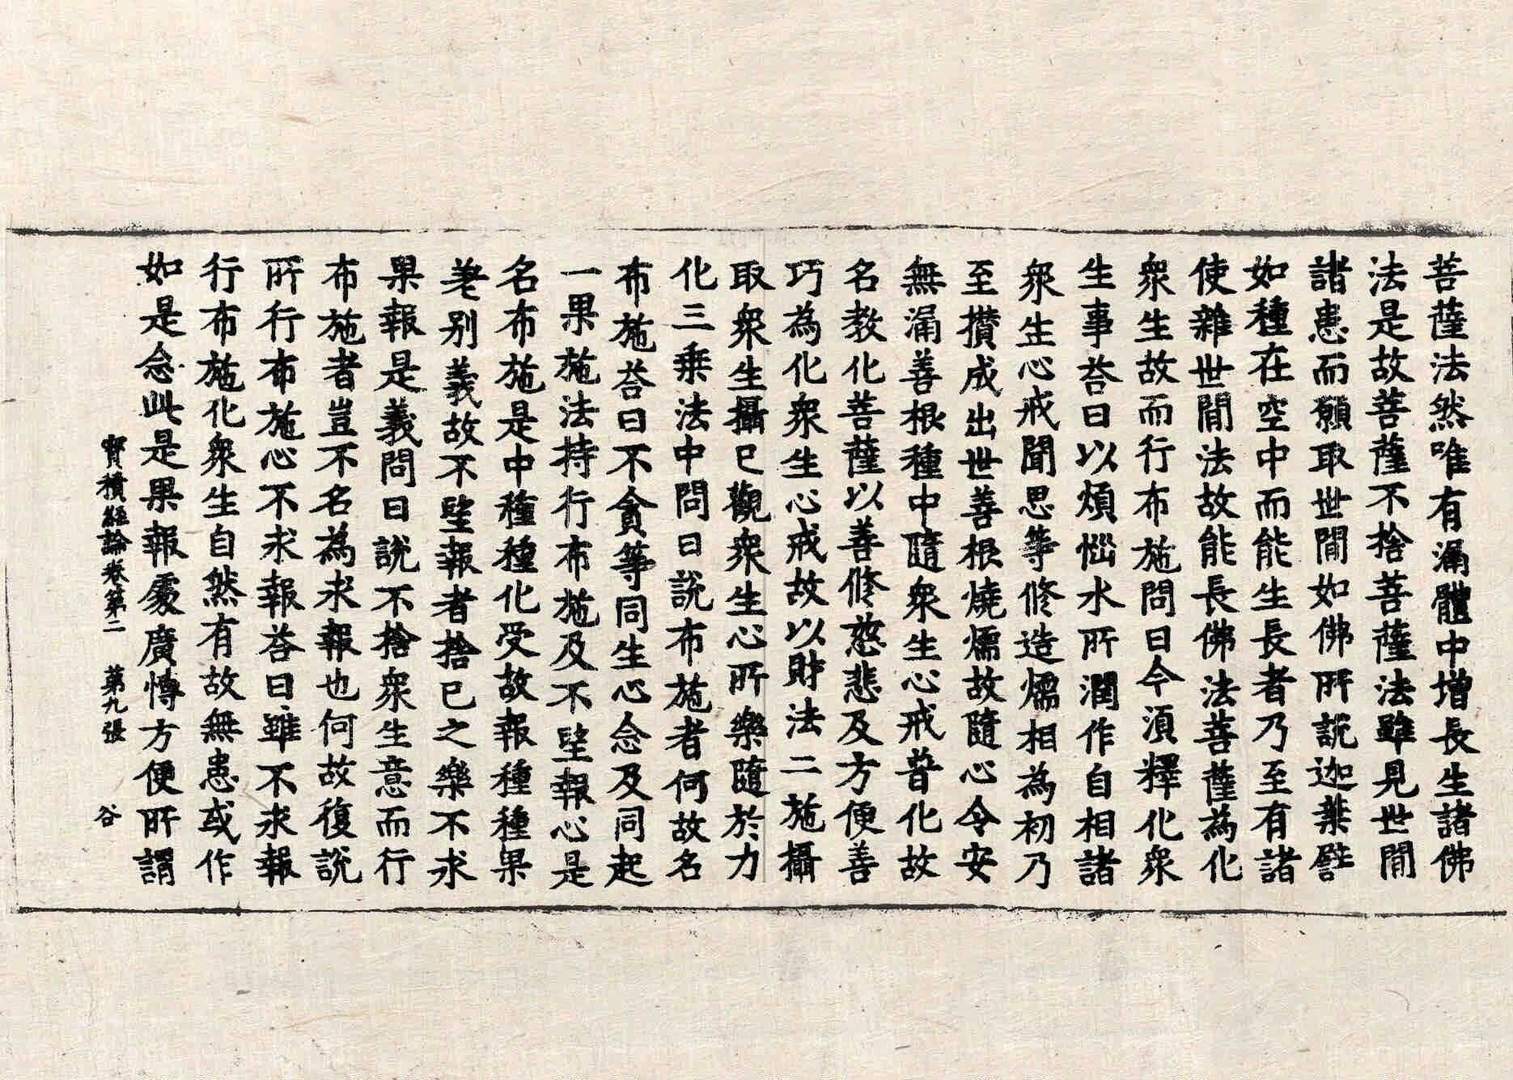 菩薩法然唯有漏體中增長生諸佛
法是故菩薩不捨菩薩法雖見世間
諸患而願取世間如佛所說迦葉譬
如種在空中而能生長者乃至有諸
使雜世間法故能長佛法菩薩為化
衆生故而行布施問曰今湏釋化衆
生事荅曰以煩惱水所潤作自相諸
衆生心戒聞思等修造煗相為初乃
至攢成出世善根燒煗故隨心令安
無漏善根種中隨衆生心戒普化故
名教化菩薩以善修慈悲及方便善
巧為化衆生心戒故以財法二施攝
取衆生攝已觀衆生心所樂隨於力
化三乗法中問曰說布施者何故名
布施荅曰不貪等同生心念及同起
一果施法持行布施及不望報心是
名布施是中種種化受故報種種果
差別義故不望報者捨已之樂不求
果報是義問曰說不捨衆生意而行
布施者豈不名為求報也何故復説
所行布施心不求報荅曰雖不求報
行布施化衆生自然有故無患或作
如是念此是果報處廣愽方便所謂
寶積經論卷第二　第九張　谷